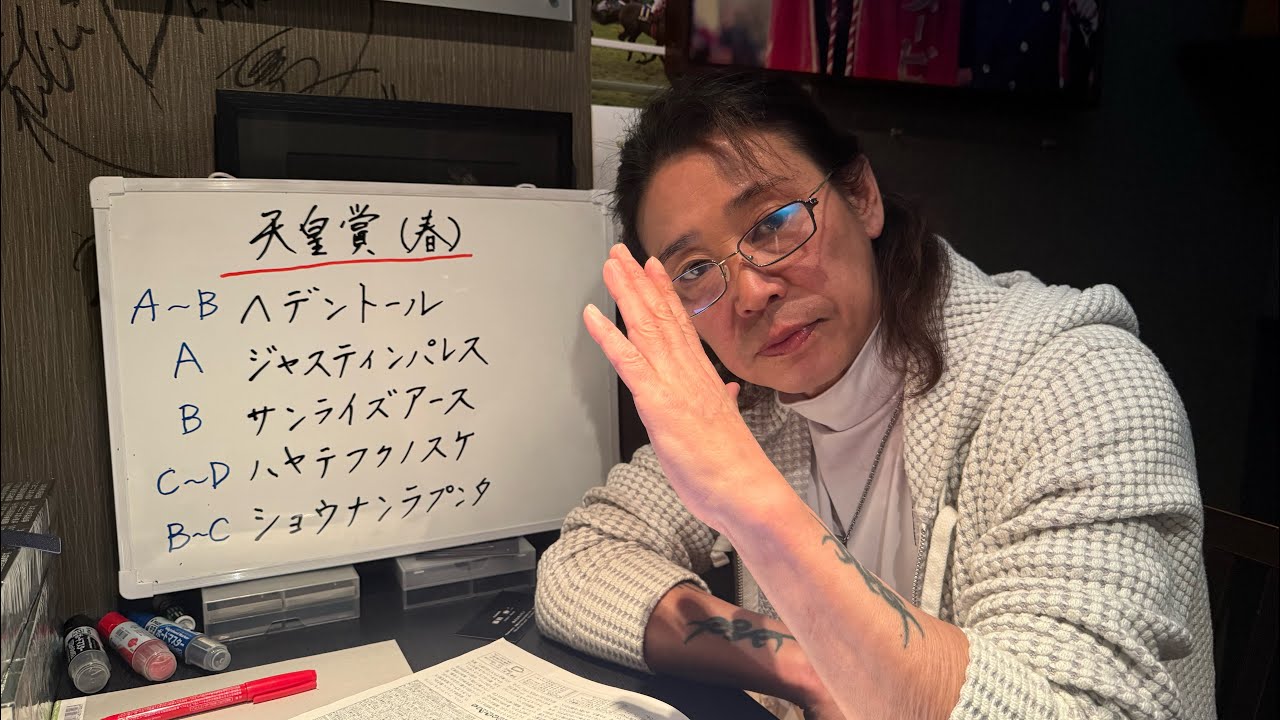 天皇賞(春)
A~B ヘデントール
A ジャスティンパレス
B サンライズアース
C~D ハヤテフクノスケ
B~C ショウナンラプンタ
ボードマスター